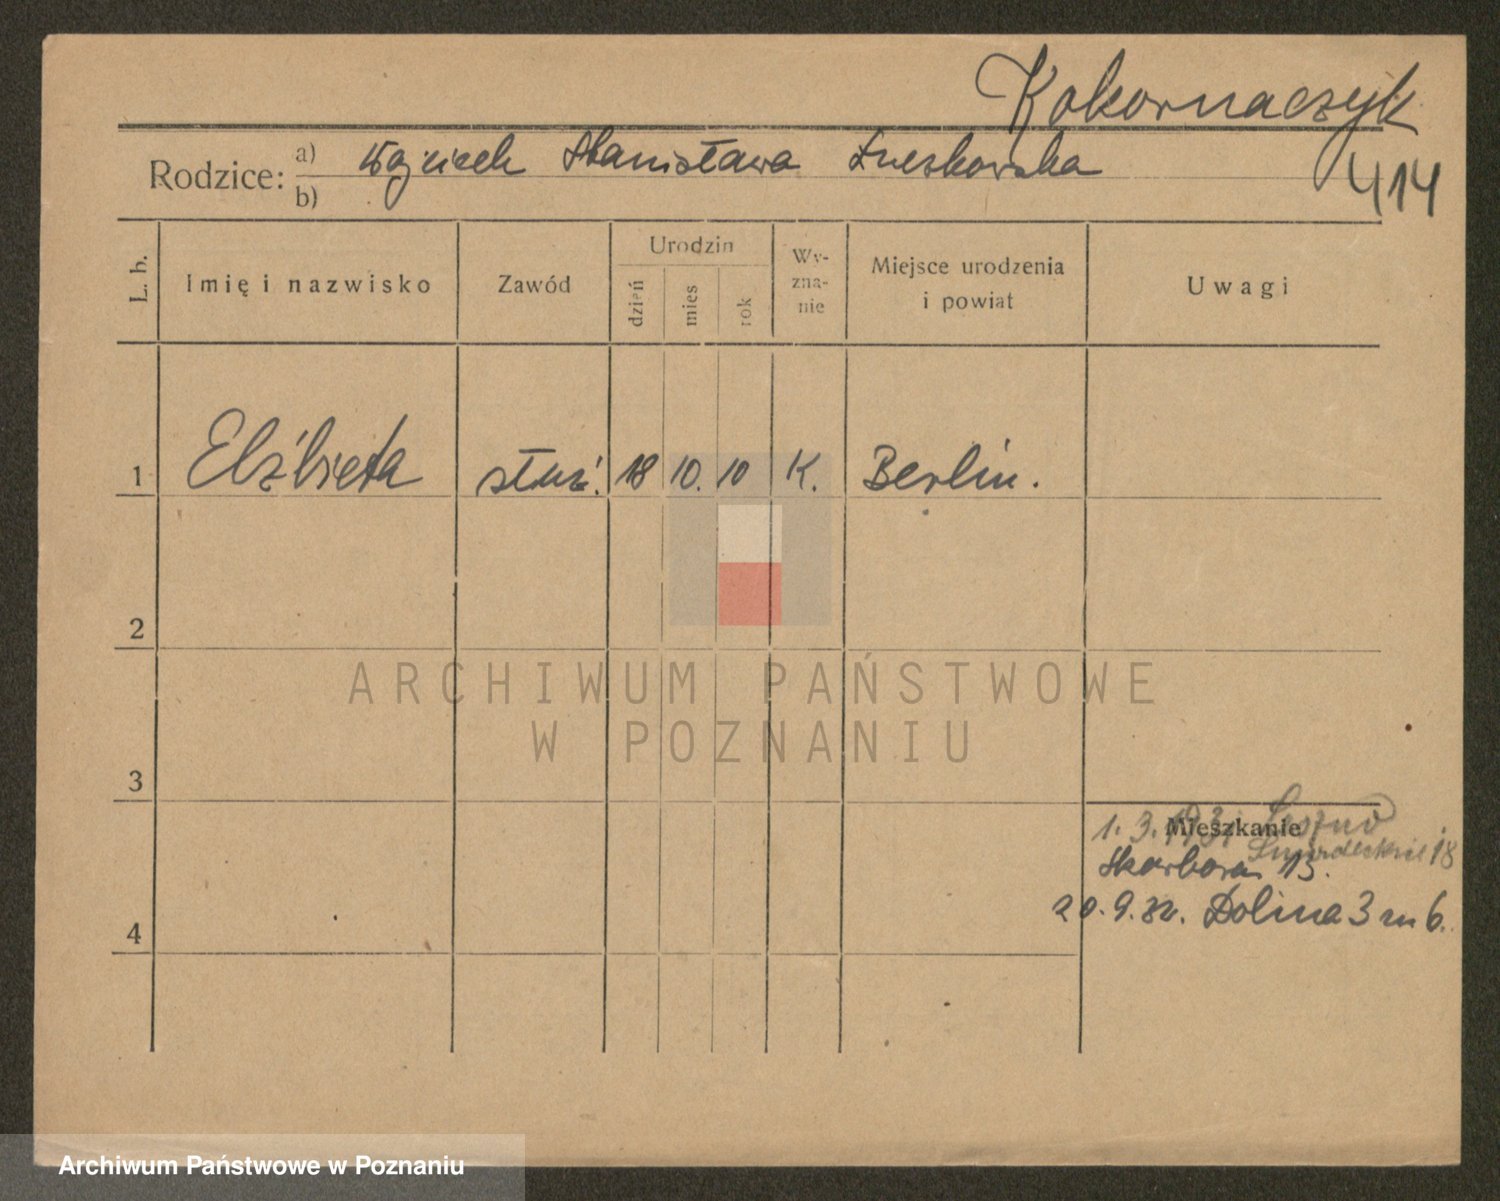 Kokornaczyk
414
Rodzice: a) Wojciech Stanisława
b)
L. b.
Imię i nazwisko
Zawód
Urodzin
dzień
mies
rok
Wy-
zna-
nie
Miejsce urodzenia
i powiat
Uwagi
1 Elżbieta służ. 18 10. 10 K. Berlin.
2
3
4
Mieszkanie
1. 3. 1931 Leszno
18
Skarbowa 13.
20. 9. 32. Dolina 3 m 6.
ARCHIWUM PAŃSTWOWE
W POZNANIU
Archiwum Państwowe w Poznaniu